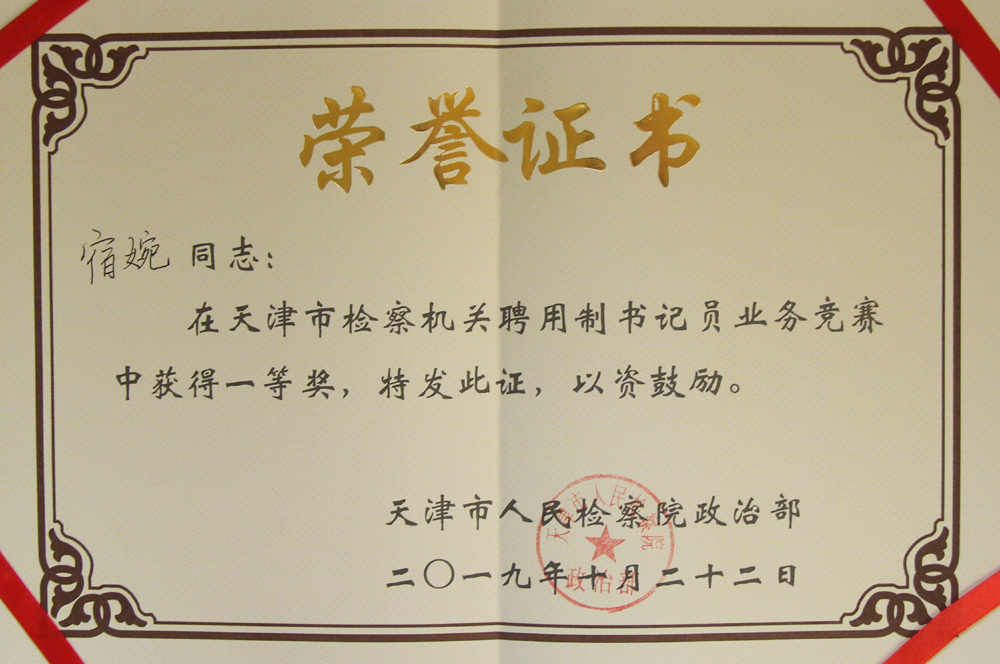 荣誉证书
宿婉 同志：
在天津市检察机关聘用制书记员业务竞赛
中获得一等奖，特发此证，以资鼓励。
天津市人民检察院政治部
二〇一九年十月二十二日
天津市人民检察院
政治部